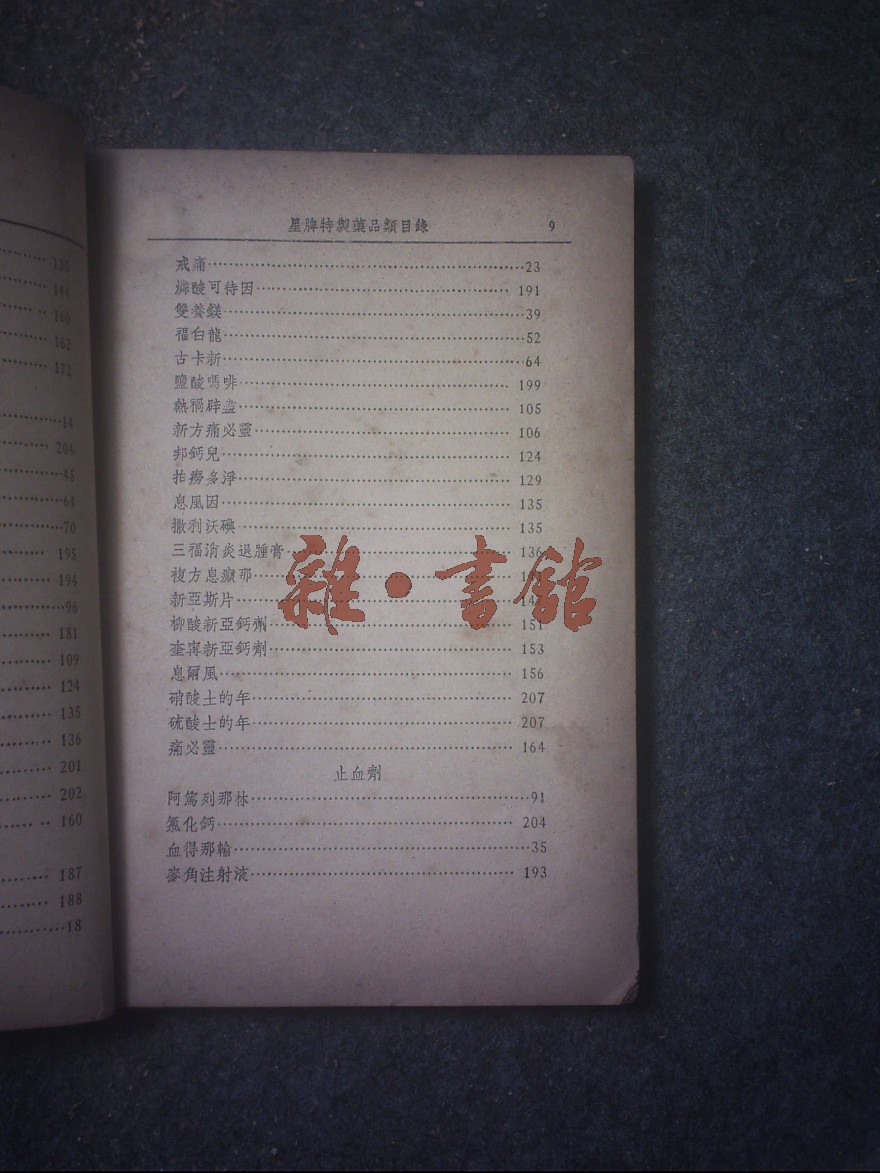 138
144
160
162
172
14
204
45
64
70
195
194
96
181
109
124
135
136
201
202
160
187
188
18
星牌特製藥品類目錄 9
戒痛……23
燐酸可待因……191
雙養鎂……39
福白龍……52
古卡新……64
鹽酸嗎啡……199
熱禍辟盡……105
新方痛必靈……106
邦鈣兒……124
拍癆多淨……129
息風因……135
撒利沃碘……135
三福消炎退腫膏……136
複方息癲那……
新亞斯片……
柳酸新亞鈣劑……151
奎寧新亞鈣劑……153
息爾風……156
硝酸士的年……207
硫酸士的年……207
痛必靈……164
止血劑
阿篤列那林……91
氯化鈣……204
血得那輸……35
麥角注射液……193
雜·書館